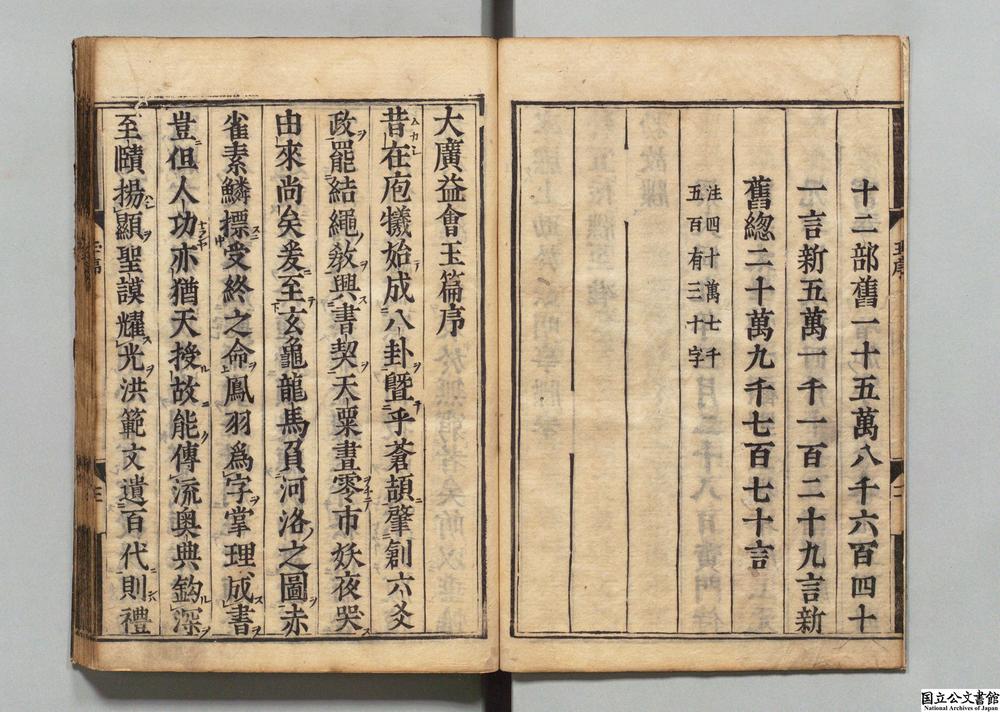 十二部舊一十五萬八千六百四十
一言新五萬一千一百二十九言新
舊緫二十萬九千七百七十言
注四十萬七千
五百有三十字
大廣益會玉篇序
昔在庖犧始成八卦曁乎蒼頡肇創六爻
政罷結繩敎興書契天粟晝零市妖夜哭
由來尚矣爰至玄龜龍馬負河洛之圖赤
雀素鱗摽受終之命鳳羽爲字掌理成書
豈但人功亦猶天授故能傳流奥典鈎深
至賾揚顯聖謨耀光洪範文遺百代則禮
国立公文書館
National Archives of Japan